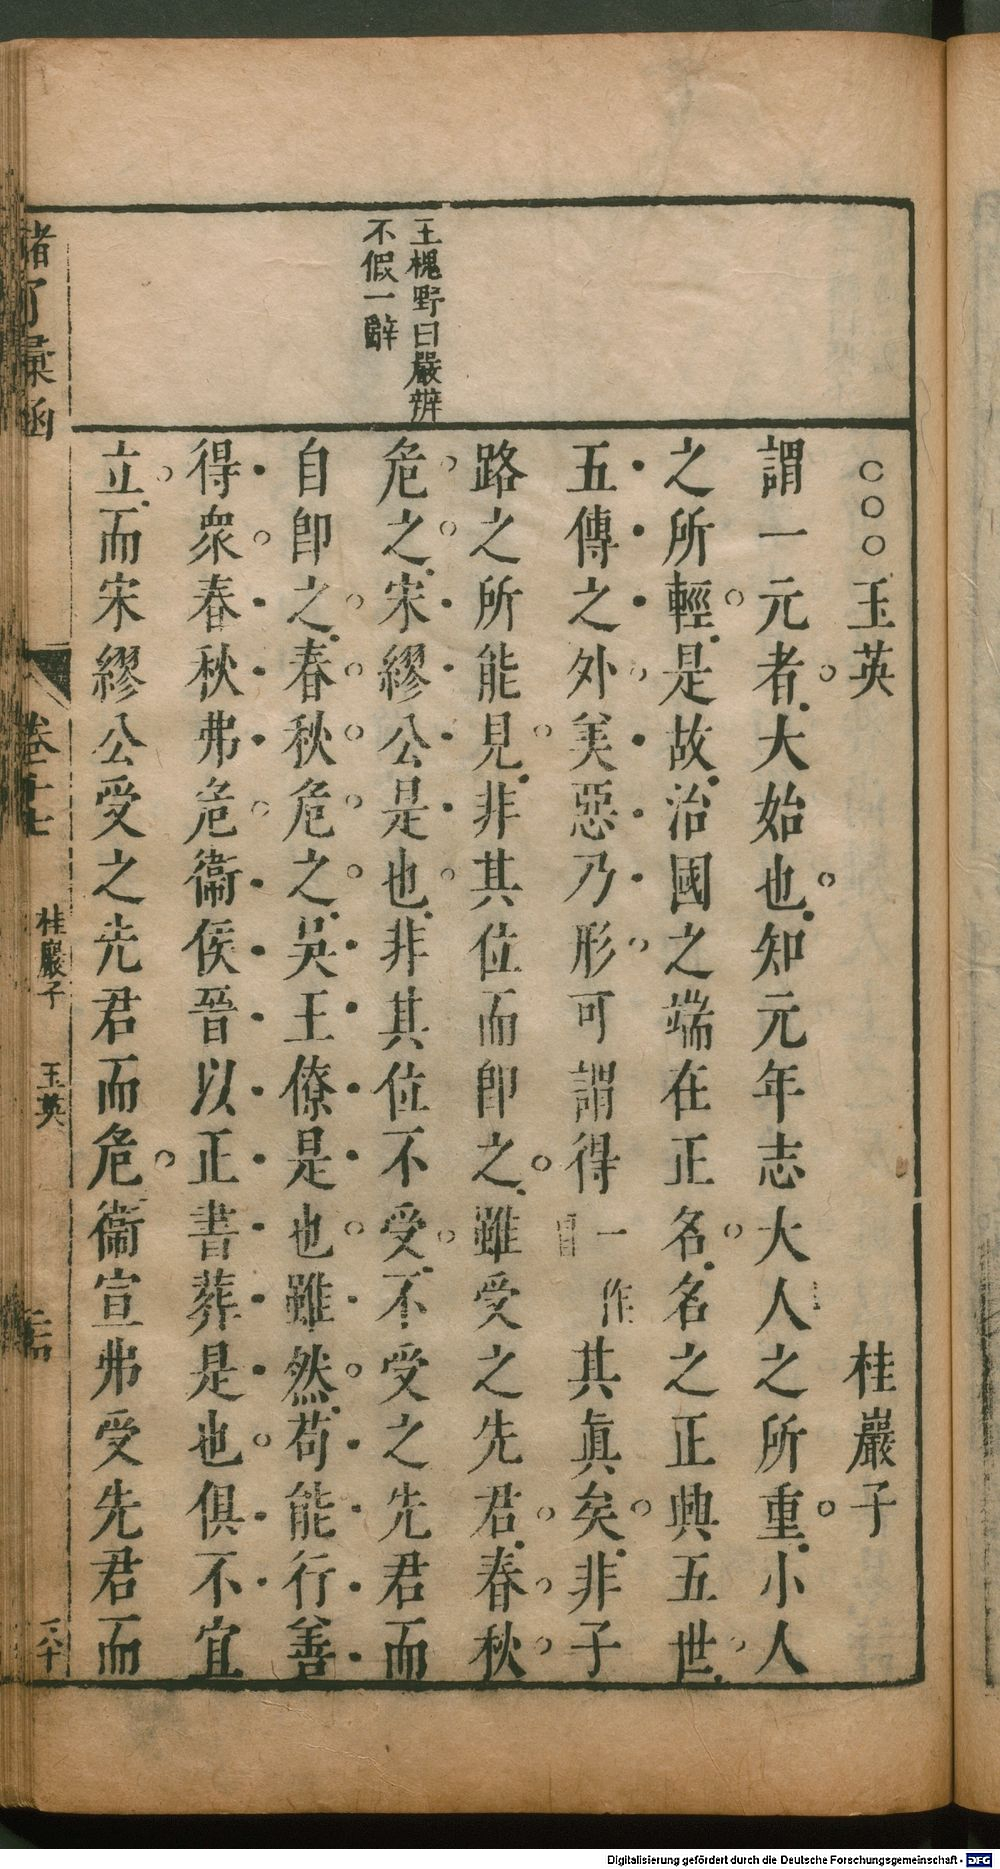 王槐野曰嚴辦
不假一辭
○○○玉英 桂巖子
謂一元者大始也知元年志大人之所重小人
之所輕是故治國之端在正名名之正興五世
五傳之外美惡乃形可謂得一作其眞矣非子
路之所能見非其位而卽之雖受之先君春秋
危之宋繆公是也非其位不受不受之先君而
自卽之春秋危之吳王僚是也雖然苟能行善
得衆春秋弗危衞侯晉以正書葬是也俱不宜
立而宋繆公受之先君而危衞宣弗受先君而
諸子彙函 卷十七 桂巖子 玉英
Digitalisierung gefördert durch die Deutsche Forschungsgemeinschaft - DFG